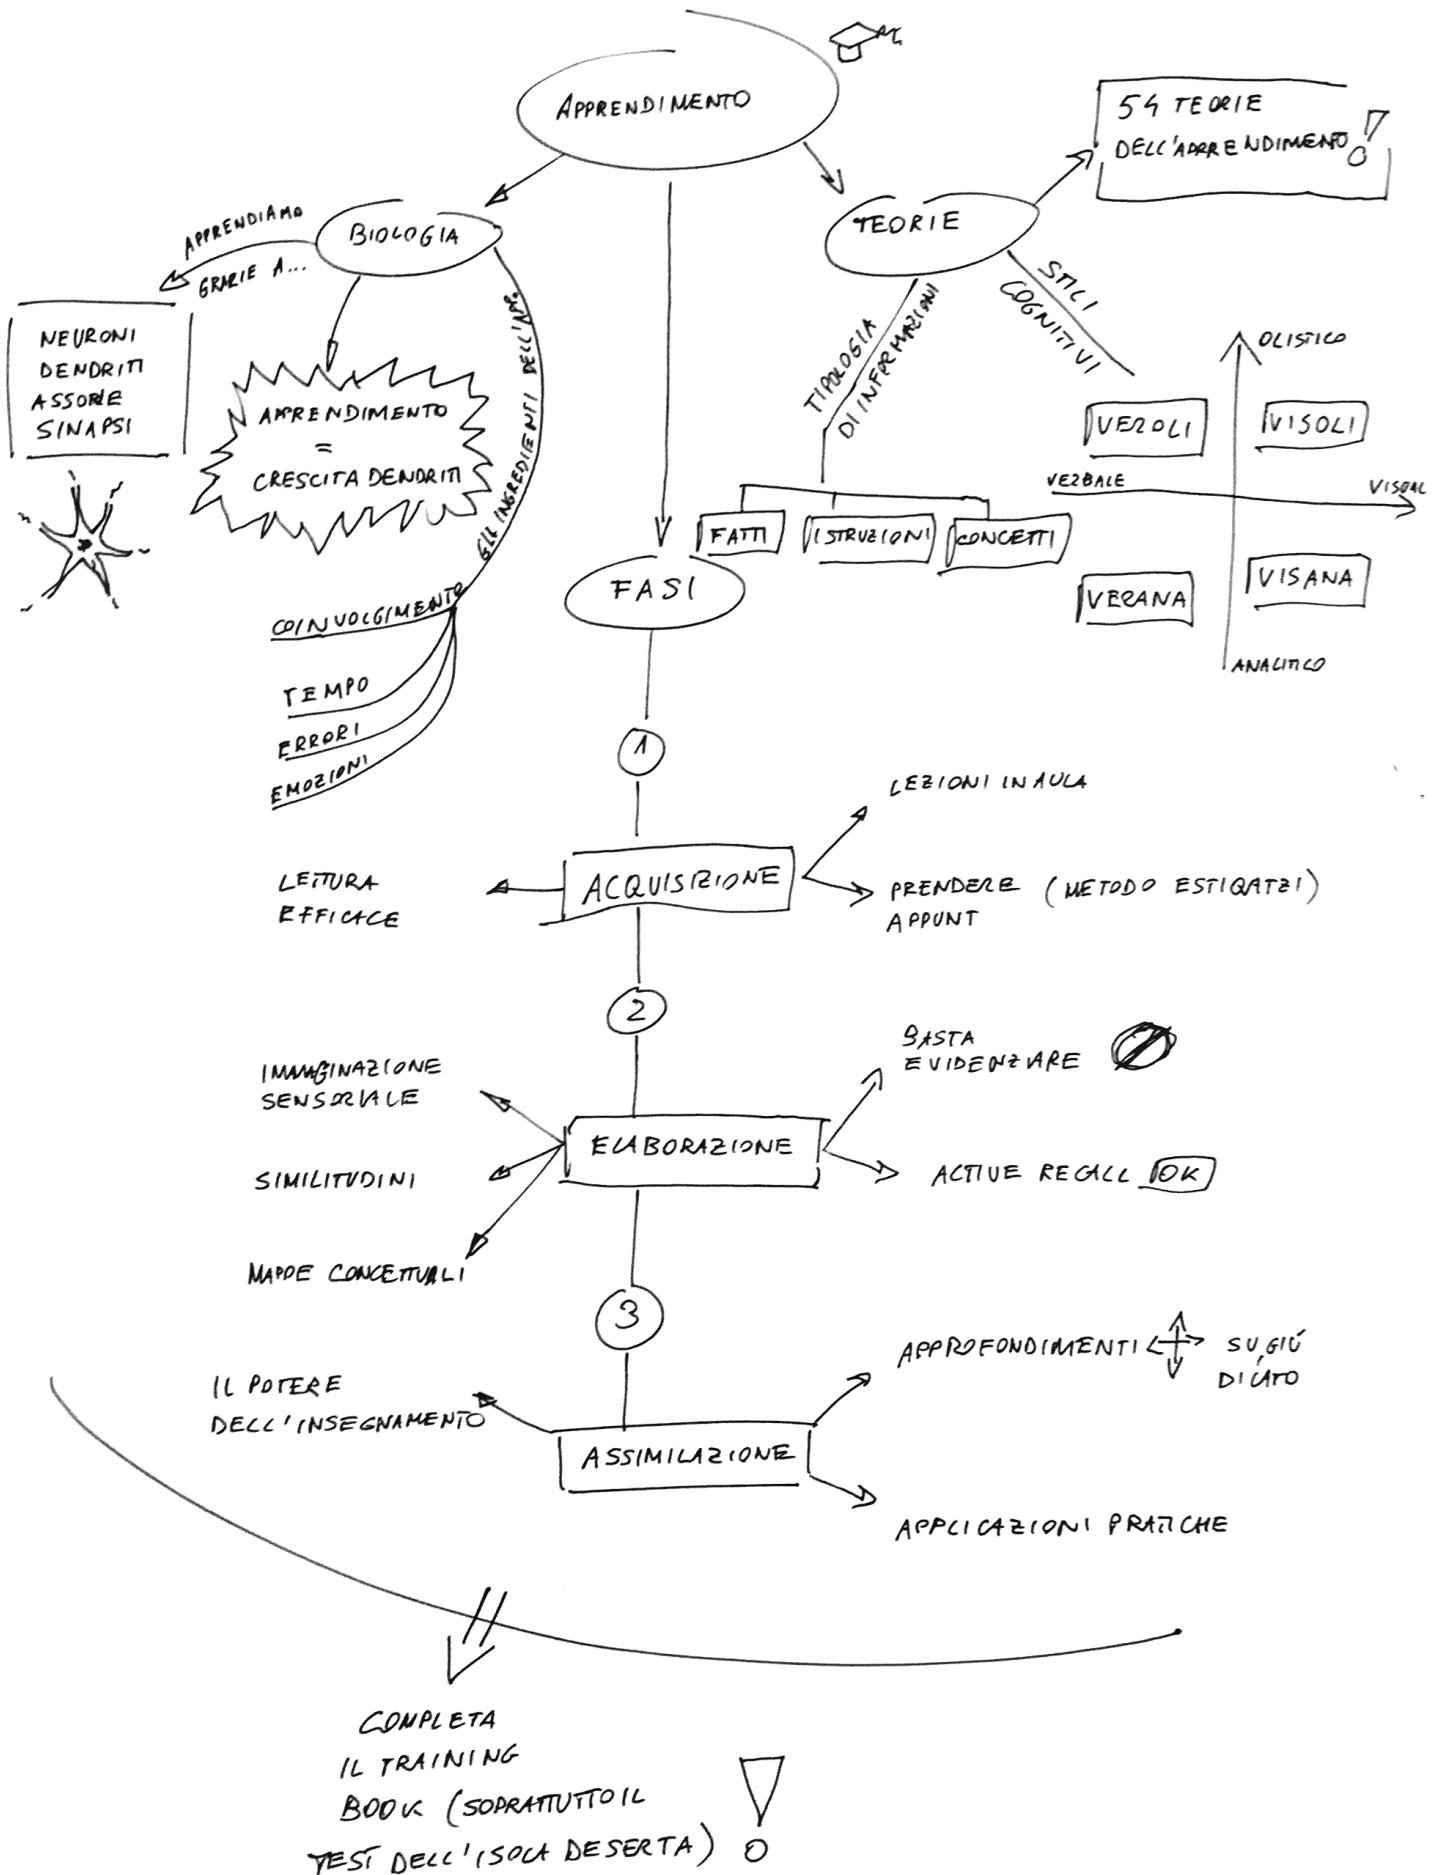 APPRENDIMENTO
54 TEORIE
DELL'APPRENDIMENTO!
BIOLOGIA
TEORIE
APPRENDIAMO
GRAZIE A...
NEURONI
DENDRITI
ASSONE
SINAPSI
APPRENDIMENTO
=
CRESCITA DENDRITI
GLI INGREDIENTI DELL'APP.
COINVOLGIMENTO
TEMPO
ERRORI
EMOZIONI
TIPOLOGIA
DI INFORMAZIONI
FATTI
ISTRUZIONI
CONCETTI
STILI
COGNITIVI
OLISTICO
VEROLI
VISOLI
VERBALE
VISUAL
VERANA
VISANA
ANALITICO
FASI
1
ACQUISIZIONE
LETTURA
EFFICACE
LEZIONI IN AULA
PRENDERE (METODO ESTIQATZI)
APPUNT
2
ELABORAZIONE
IMMAGINAZIONE
SENSORIALE
SIMILITUDINI
MAPPE CONCETTUALI
BASTA
EVIDENZIARE
ACTIVE RECALL OK
3
ASSIMILAZIONE
IL POTERE
DELL'INSEGNAMENTO
APPROFONDIMENTI
SU, GIÚ
DI LATO
APPLICAZIONI PRATICHE
COMPLETA
IL TRAINING
BOOK (SOPRATTUTTO IL
TEST DELL'ISOLA DESERTA) !